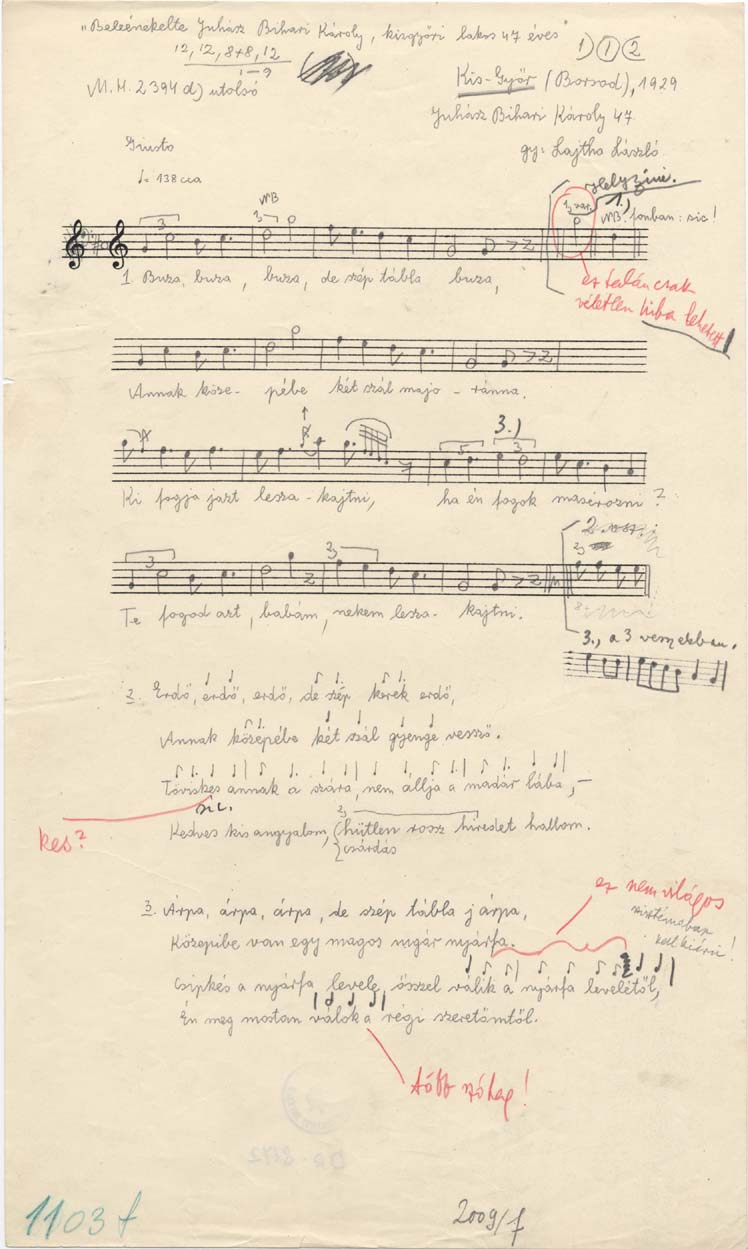 „Beleénekelte Juhász Bihari Károly, kisgyőri lakos 47 éves"
12, 12, 8+8, 12
1–9
1) 1 2
M.H. 2394 d) utolsó
Kis-Győr (Borsod), 1929
Juhász Bihari Károly 47
gy: Lajtha László.
Giusto
♩= 138 cca
Helyszíni.
3
NB
3
1.)
NB. fonban: sic!
1. Buza, buza, buza, de szép tábla buza,
ez talán csak
véletlen hiba lehetett
Annak köze- pébe két szál majo- ránna.
5
3.)
3
Ki fogja jazt lesza- kajtni, ha én fogok masérozni?
2.
3
Te fogod azt, babám, nekem lesza- kajtni.
3., a 3 versszakban.
2. Erdő, erdő, erdő, de szép kerek erdő,
Annak közepébe két szál gyenge vessző.
Töviskes annak a szára, nem állja a madár lába, –
sic.
kes?
Kedves kis angyalom, hűtlen rossz híredet hallom.
csárdás
ez nem világos
3. Árpa, árpa, árpa, de szép tábla járpa,
Közepibe van egy magos nyárfa.
Csipkés a nyárfa levele, ősszel válik a nyárfa levelétől,
Én meg mostan válok a régi szeretőmtől.
több szótag!
1103 f
2009/f